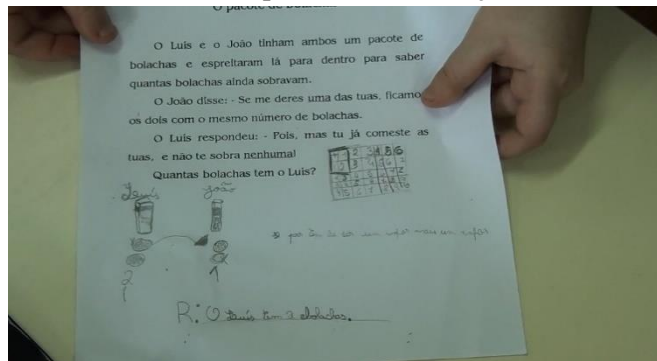 O pacote de bolachas
O Luis e o João tinham ambos um pacote de
bolachas e espreitaram lá para dentro para saber
quantas bolachas ainda sobravam.
O João disse: - Se me deres uma das tuas, ficamos
os dois com o mesmo número de bolachas.
O Luis respondeu: - Pois, mas tu já comeste as
tuas, e não te sobra nenhuma!
Quantas bolachas tem o Luis?
Luís João
2 1
R: O Luís tem 2 bolachas.